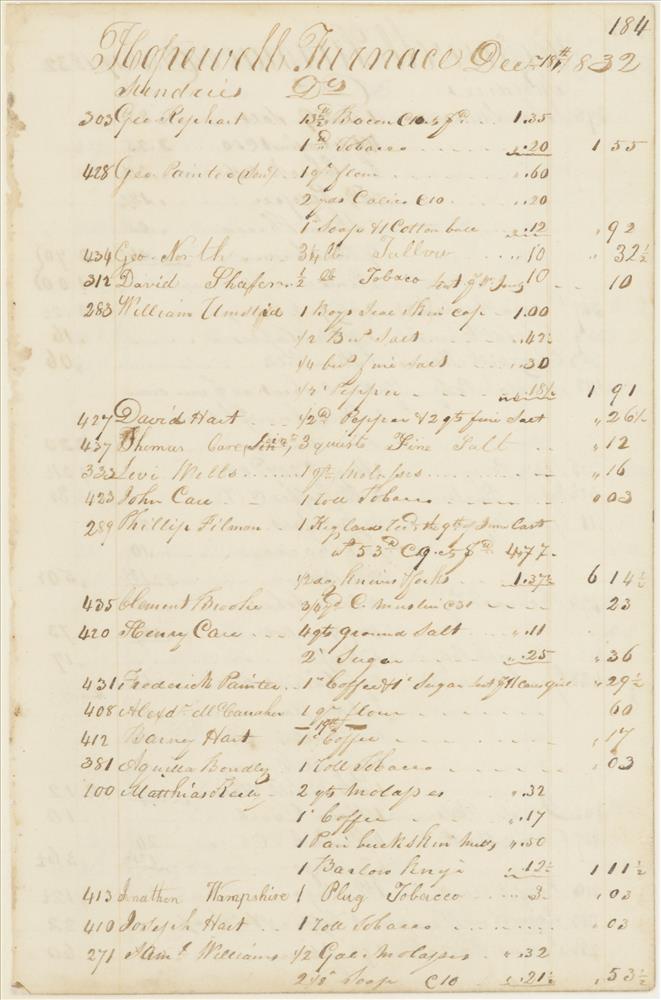 184
Hopewell Furnace Decr 18th 1832
Sundries Drs
303 Geo Rephart 13½ lb Bacon @ 10 1.35
1 lb Tobacco .20 1 55
428 Geo Painter (Senr) 1 qr flour .60
2 yds Calico @10 .20
1 lb Soap &1 Cotton .12 " 92
434 Geo North 3¼ lb Tallow 10 " 32½
312 David Shafer ½ lb Tobaco 10 10
283 William Umsted 1 Boys Seal Skin cap 1.00
½ Bul Salt .42½
¼ bul fine Salt .30
½ lb Pepper .18½ 1 91
427 David Hart ½ lb Pepper & 2 qts fine Salt " 26½
437 Thomas Care, Senr 3 quarts Fine Salt " 12
332 Levi Wells 1 qt Molasses " 16
423 John Care 1 Roll Tobacco " 03
289 Phillip Filman 1 Keg Lard
53 lb @ 9 4.77
½ doz Knives & forks 1.37½ 6 14½
435 Clement Brooke 3/4 yd C. Muslin 23
420 Henry Care 4 qts ground Salt .11
2 lb Sugar .25 " 36
431 Frederick Painter 1 lb Coffee & 1 lb Sugar " 29½
408 Alexdr McCanaher 1 qr flour 60
19th
412 Barney Hart 1 lb Coffee " 17
381 Aquilla Bendley 1 Roll Tobacco " 03
100 Matthias Keely 2 qts Molasses .32
1 lb Coffee .17
1 Pair buckskin Mitts .50
1 Barlow Knife .12½ 1 11½
413 Jonathan Wampshire 1 Plug Tobacco 3 " 03
410 Joseph Hart 1 Roll Tobacco " 03
271 Saml Williams ½ Gal. Molasses .32
2 lb Soap @10 .21½ " 53½